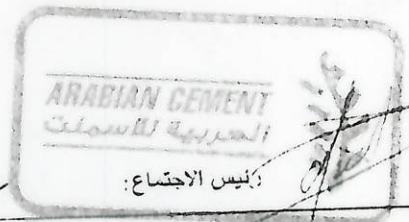 ARABIAN CEMENT
العربية للأسمنت
رئيس الاجتماع: